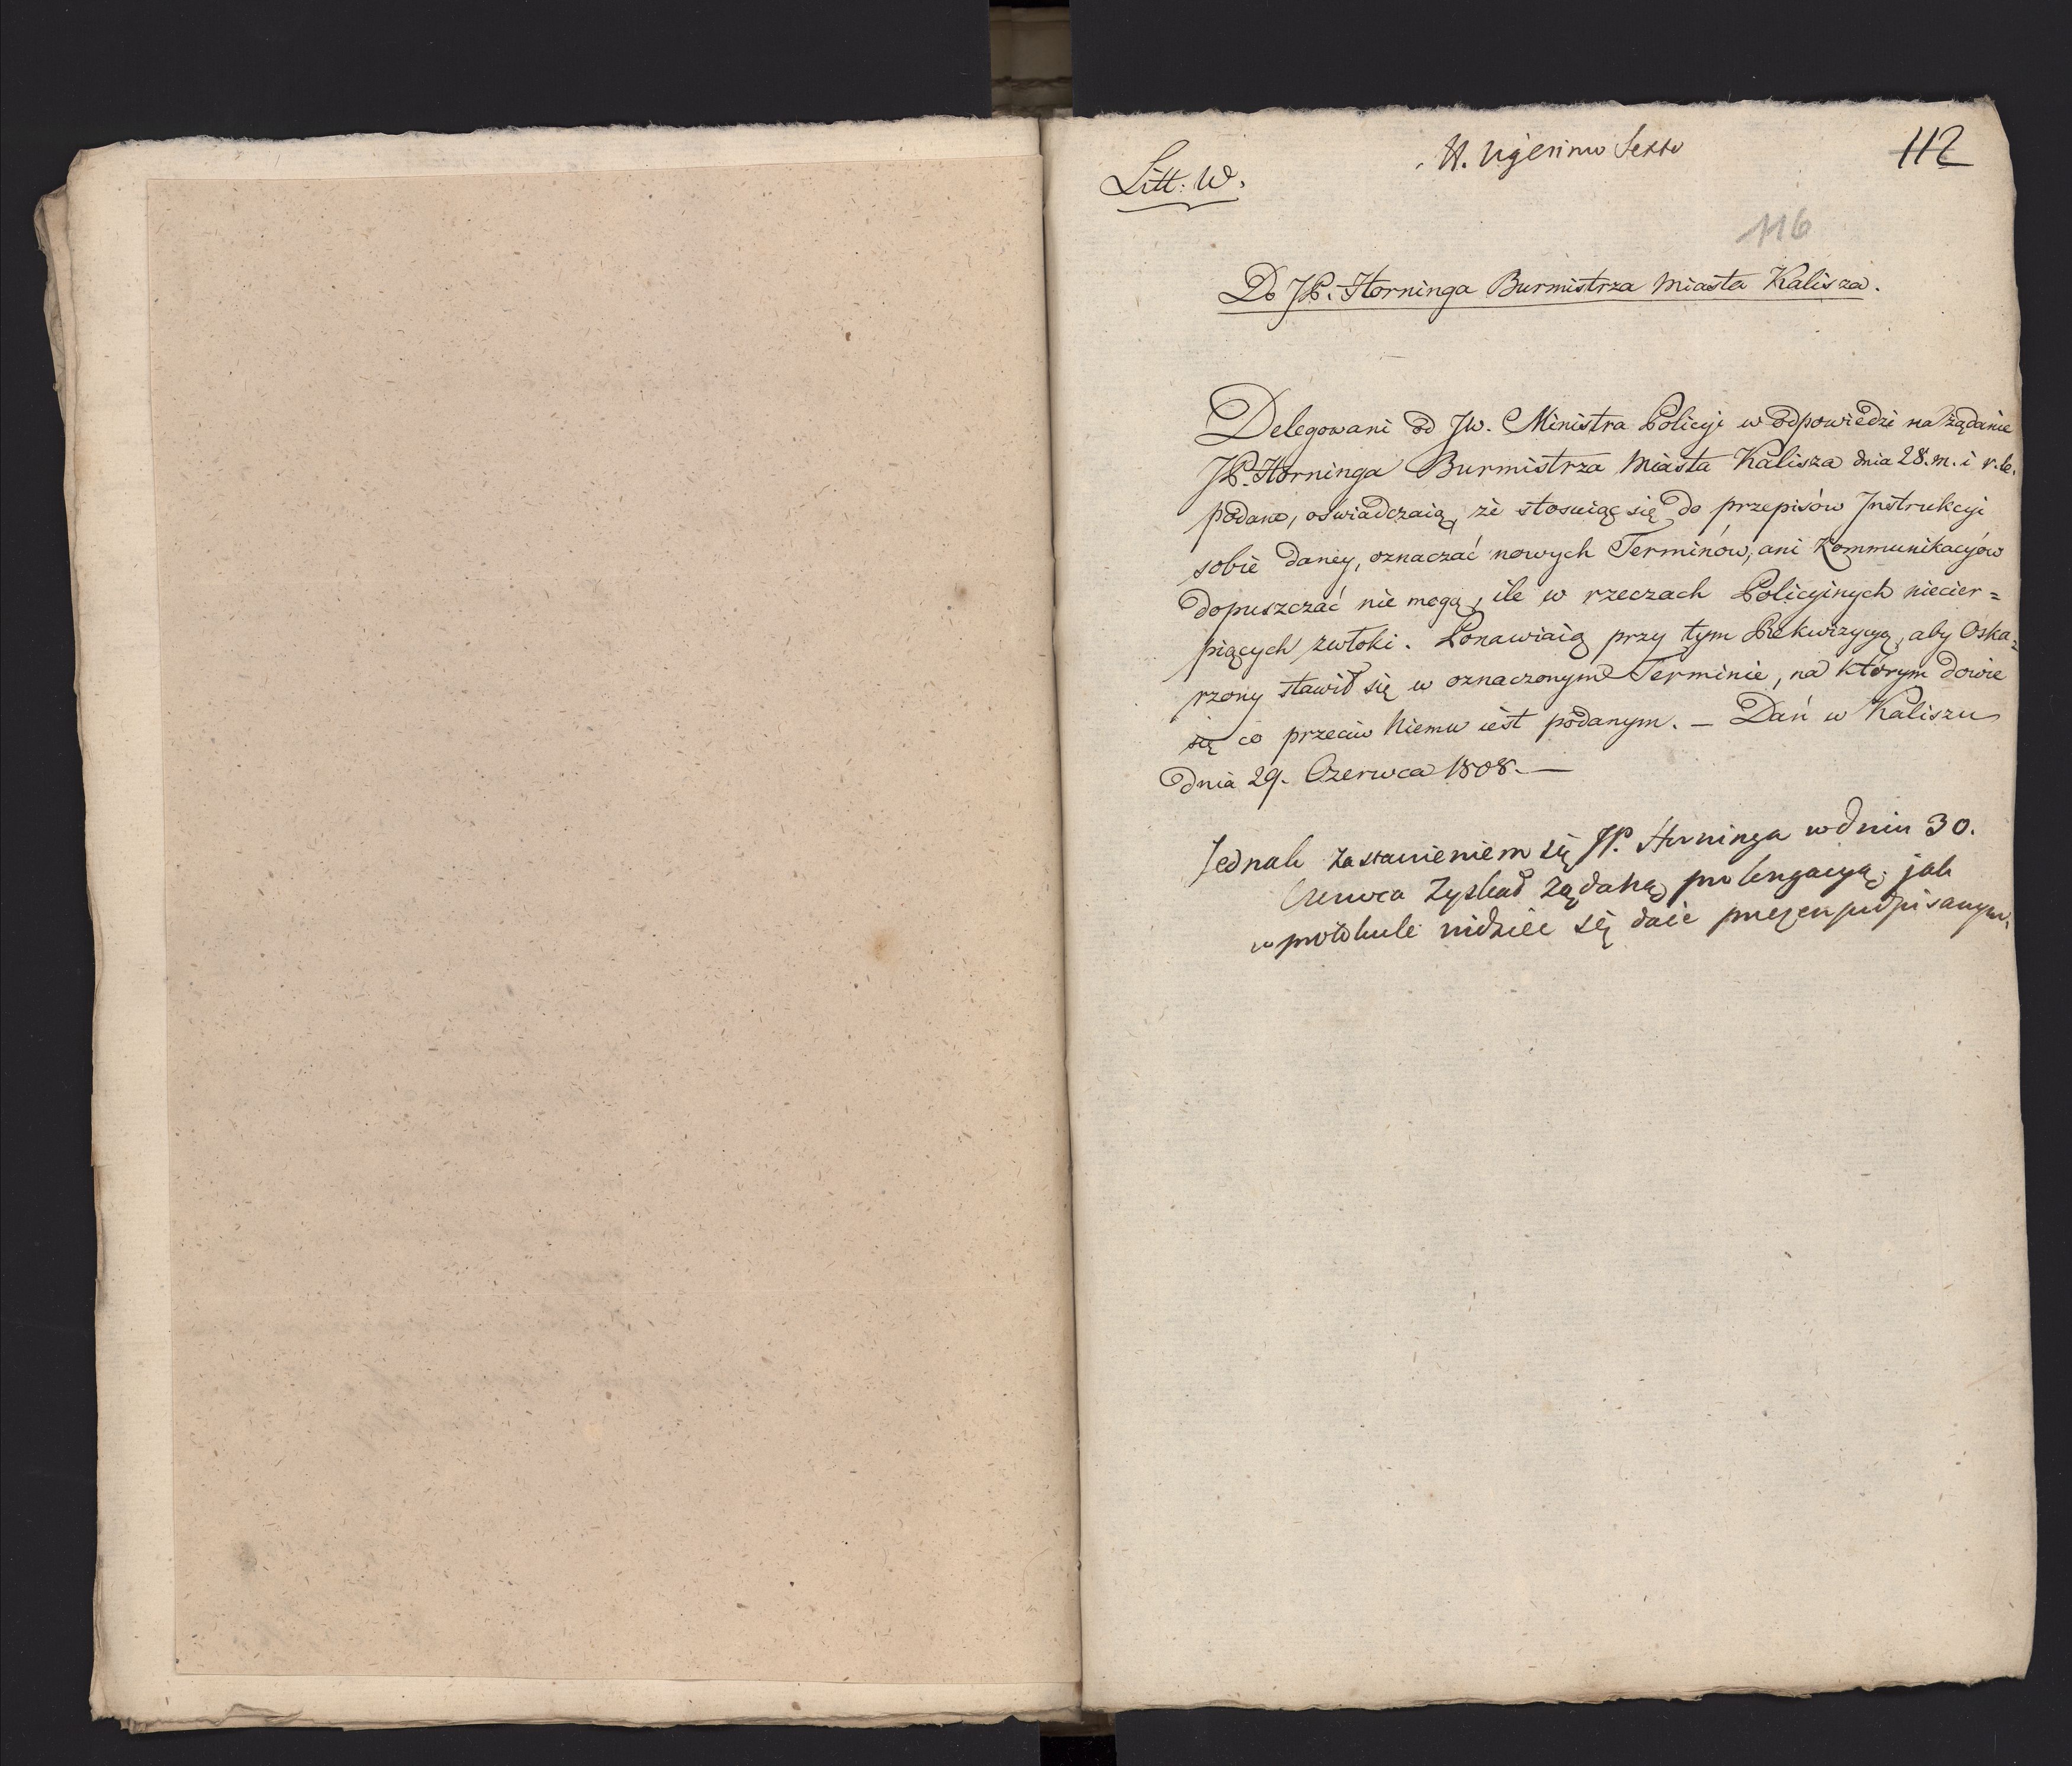 Litt: W.
N. Vigesimo Sexto
112
116
Do JP. Horninga Burmistrza Miasta Kalisza.
Delegowani od JW. Ministra Policyi w odpowiedzi na żądanie
JP. Horninga Burmistrza Miasta Kalisza dnia 28. m. i r. b.
podane, oświadczaią, że stosuiąc się do przepisów Instrukcyi
sobie daney, oznaczać nowych Terminów, ani Kommunikacyów
dopuszczać nie mogą, ile w rzeczach Policyinych niecier=
piących zwłoki. Ponawiaią przy tym Rekwizycyą, aby Oska=
rzony stawił się w oznaczonym Terminie, na którym dowie
się co przeciw Niemu iest podanym. — Dań w Kaliszu
dnia 29. Czerwca 1808. —
Jednak za stawieniem się JP. Horninga w dniu 30.
Czerwca zyskał żądaną prolongacyą, jak
w protokule widzieć się daie przezen podpisanym.